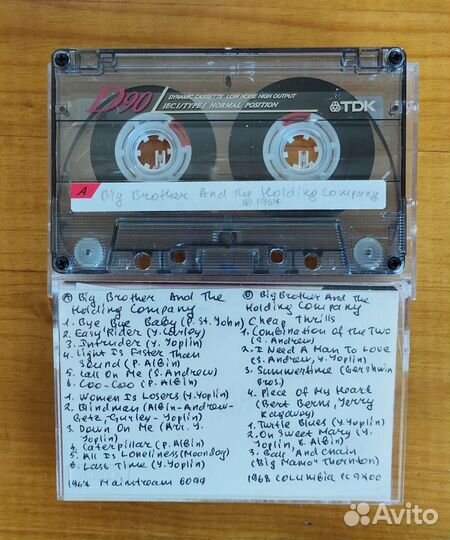 D90
DYNAMIC CASSETTE LOW NOISE HIGH OUTPUT
IEC I / TYPE I NORMAL POSITION
TDK
A Big Brother And The Holding Company
© 1967
Ⓐ Big Brother And The
Holding Company
1. Bye Bye Baby (P. St. John)
2. Easy Rider (J. Gurley)
3. Intruder (Y. Yoplin)
4. Light Is Faster Than
Sound (P. Albin)
5. Call On Me (S. Andrew)
6. Coo-Coo (P. Albin)
1. Women Is Losers (Y. Yoplin)
2. Blindman (Albin-Andrew-
Getz, Gurley-Yoplin)
3. Down On Me (Arr. Y.
Yoplin)
4. Caterpillar (P. Albin)
5. All Is Loneliness (Moondog)
6. Last Time (Y. Yoplin)
1967 Mainstream 6099
Big Brother And The
Holding Company
Cheap Thrills
1. Combination Of The Two
(S. Andrew)
2. I Need A Man To Love
(S. Andrew, Y. Yoplin)
3. Summertime (Gershwin
Bros.)
4. Piece Of My Heart
(Bert Berns, Jerry
Ragavoy)
1. Turtle Blues (Y. Yoplin)
2. Oh Sweet Mary (Y.
Yoplin, B. Albin)
3. Ball And Chain
(Big Mama Thornton)
1968 Columbia PC 9700
Avito